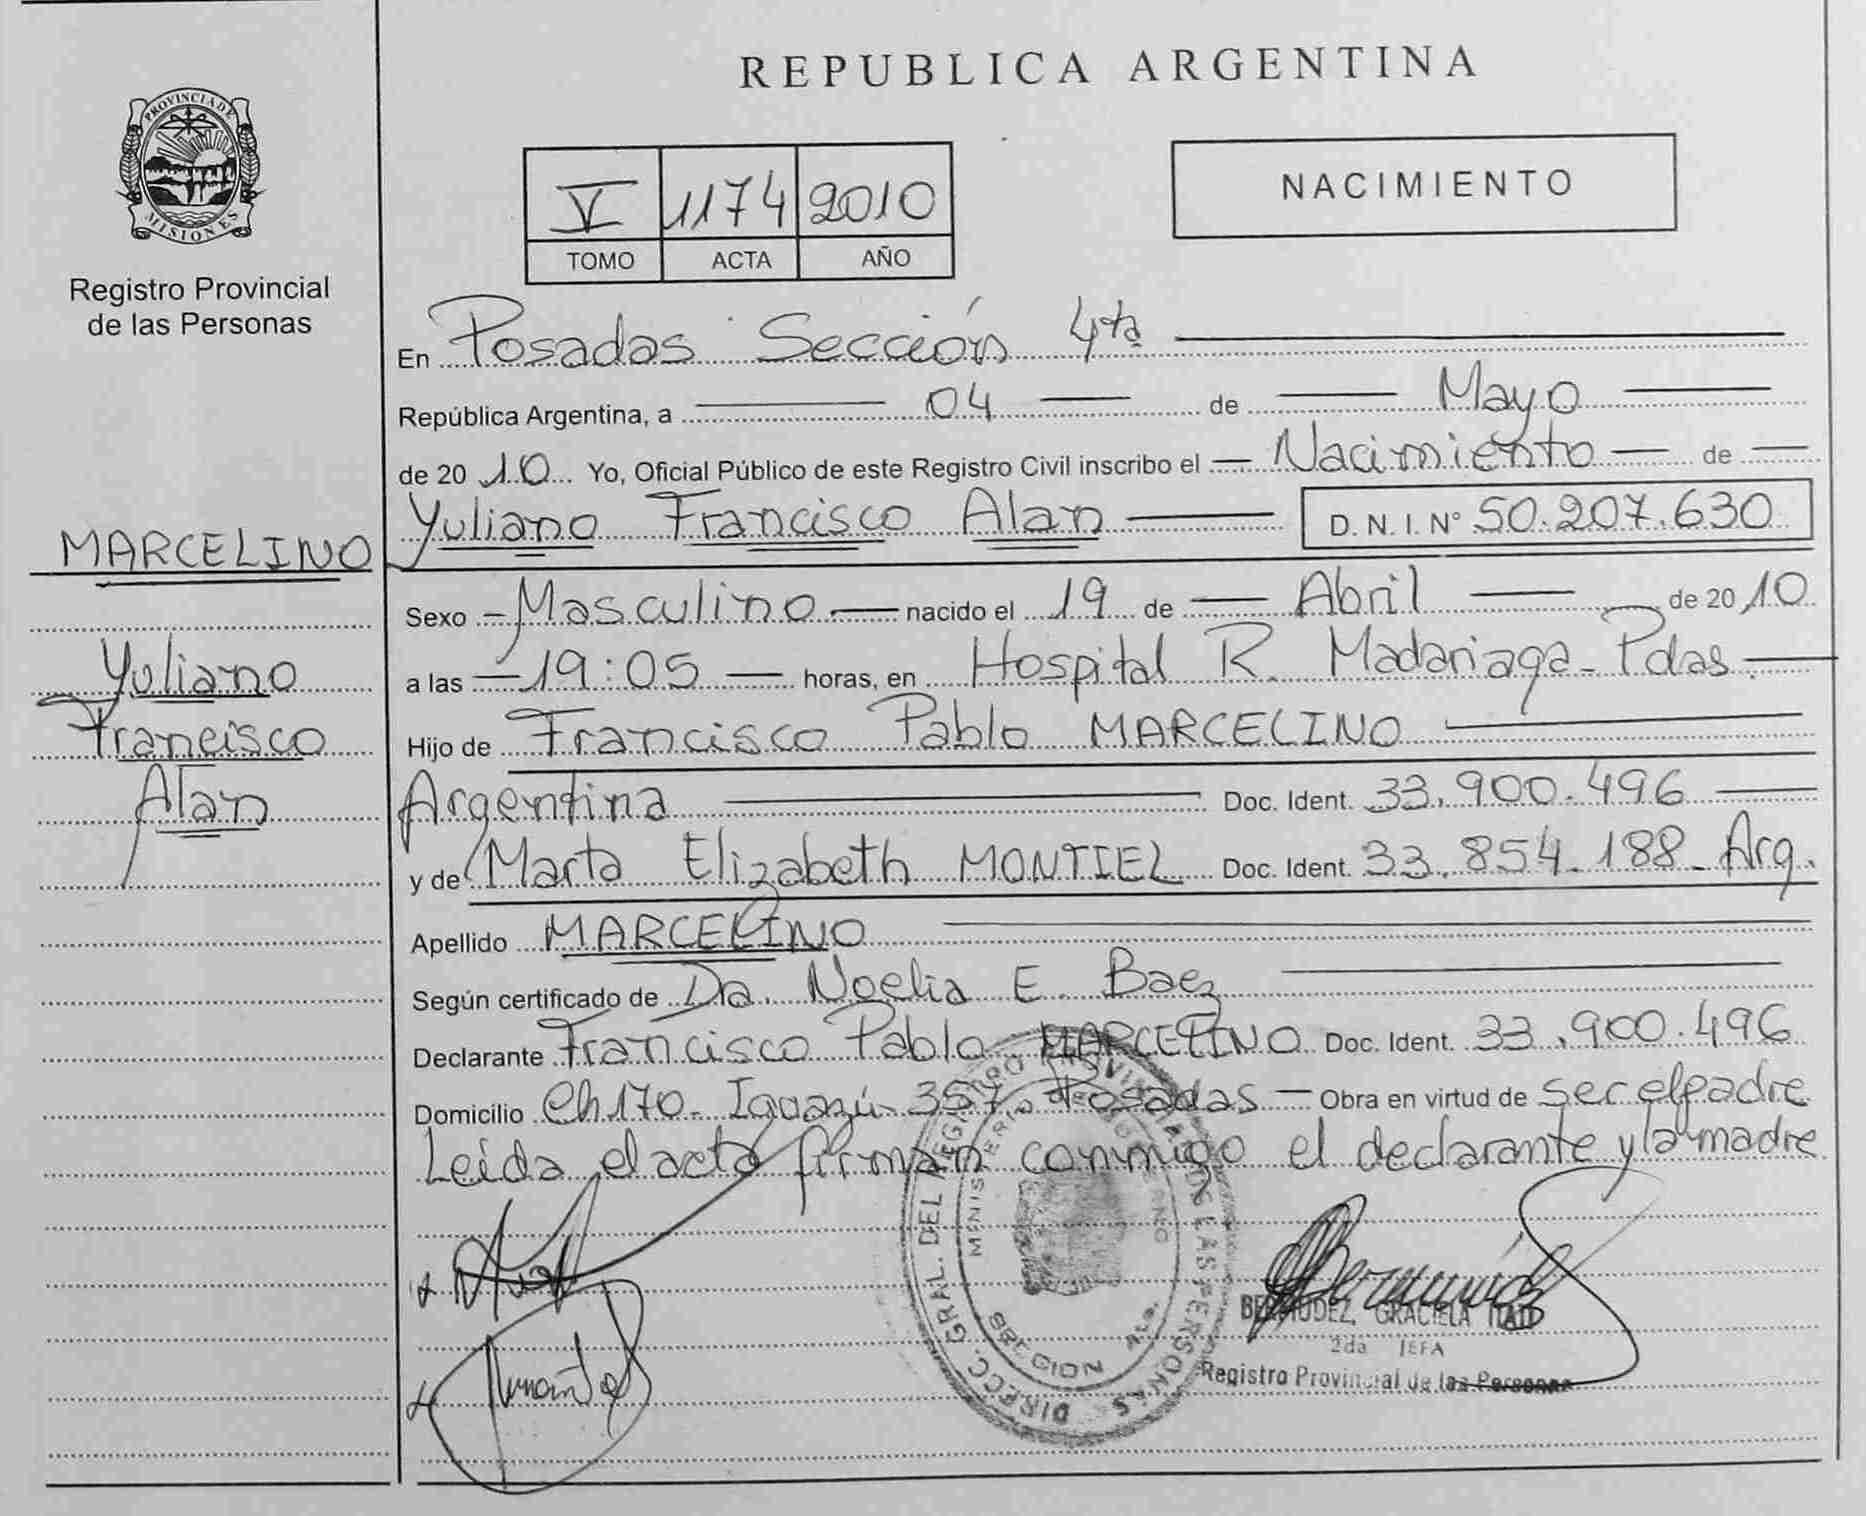 REPUBLICA ARGENTINA
PROVINCIA DE
MISIONES
Registro Provincial
de las Personas
V 1174 2010
TOMO ACTA AÑO
NACIMIENTO
En Posadas Sección 4ta
República Argentina, a 04 de Mayo
de 2010 Yo, Oficial Público de este Registro Civil inscribo el Nacimiento de
Yuliano Francisco Alan D. N. I. Nº 50.207.630
MARCELINO
Yuliano
Francisco
Alan
Sexo Masculino nacido el 19 de Abril de 2010
a las 19:05 horas, en Hospital R. Madariaga - Pdas.
Hijo de Francisco Pablo MARCELINO
Argentina Doc. Ident. 33.900.496
y de Marta Elizabeth MONTIEL Doc. Ident. 33.854.188 - Arg.
Apellido MARCELINO
Según certificado de Dra. Noelia E. Baez
Declarante Francisco Pablo MARCELINO Doc. Ident. 33.900.496
Domicilio Ch 170 - Iguazú 357 - Posadas - Obra en virtud de ser el padre
Leida el acta firman conmigo el declarante y la madre
DIRECC. GRAL. DEL REGISTRO PROVINCIAL DE LAS PERSONAS
BERMUDEZ, GRACIELA ITATI
2da JEFA
Registro Provincial de las Personas